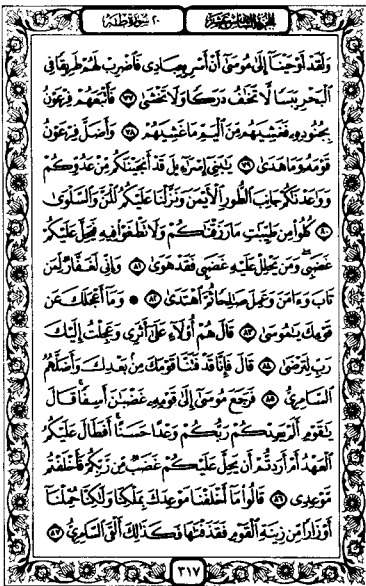 الجزء السادس عشر ٢٠ سورة طه
وَلَقَدْ أَوْحَيْنَا إِلَىٰ مُوسَىٰ أَنْ أَسْرِ بِعِبَادِى فَاضْرِبْ لَهُمْ طَرِيقًا فِى
الْبَحْرِ يَبَسًا لَّا تَخَٰفُ دَرَكًا وَلَا تَخْشَىٰ ٧٧ فَأَتْبَعَهُمْ فِرْعَوْنُ
بِجُنُودِهِۦ فَغَشِيَهُم مِّنَ الْيَمِّ مَا غَشِيَهُمْ ٧٨ وَأَضَلَّ فِرْعَوْنُ
قَوْمَهُۥ وَمَا هَدَىٰ ٧٩ يَٰبَنِىٓ إِسْرَٰٓءِيلَ قَدْ أَنجَيْنَٰكُم مِّنْ عَدُوِّكُمْ
وَوَٰعَدْنَٰكُمْ جَانِبَ الطُّورِ الْأَيْمَنَ وَنَزَّلْنَا عَلَيْكُمُ الْمَنَّ وَالسَّلْوَىٰ
٨٠ كُلُوا۟ مِن طَيِّبَٰتِ مَا رَزَقْنَٰكُمْ وَلَا تَطْغَوْا۟ فِيهِ فَيَحِلَّ عَلَيْكُمْ
غَضَبِى وَمَن يَحْلِلْ عَلَيْهِ غَضَبِى فَقَدْ هَوَىٰ ٨١ وَإِنِّى لَغَفَّارٌ لِّمَن
تَابَ وَءَامَنَ وَعَمِلَ صَٰلِحًا ثُمَّ اهْتَدَىٰ ٨٢ وَمَآ أَعْجَلَكَ عَن
قَوْمِكَ يَٰمُوسَىٰ ٨٣ قَالَ هُمْ أُو۟لَآءِ عَلَىٰٓ أَثَرِى وَعَجِلْتُ إِلَيْكَ
رَبِّ لِتَرْضَىٰ ٨٤ قَالَ فَإِنَّا قَدْ فَتَنَّا قَوْمَكَ مِنۢ بَعْدِكَ وَأَضَلَّهُمُ
السَّامِرِىُّ ٨٥ فَرَجَعَ مُوسَىٰٓ إِلَىٰ قَوْمِهِۦ غَضْبَٰنَ أَسِفًا قَالَ
يَٰقَوْمِ أَلَمْ يَعِدْكُمْ رَبُّكُمْ وَعْدًا حَسَنًا أَفَطَالَ عَلَيْكُمُ
الْعَهْدُ أَمْ أَرَدتُّمْ أَن يَحِلَّ عَلَيْكُمْ غَضَبٌ مِّن رَّبِّكُمْ فَأَخْلَفْتُم
مَّوْعِدِى ٨٦ قَالُوا۟ مَآ أَخْلَفْنَا مَوْعِدَكَ بِمَلْكِنَا وَلَٰكِنَّا حُمِّلْنَآ
أَوْزَارًا مِّن زِينَةِ الْقَوْمِ فَقَذَفْنَٰهَا فَكَذَٰلِكَ أَلْقَى السَّامِرِىُّ ٨٧
٣١٧